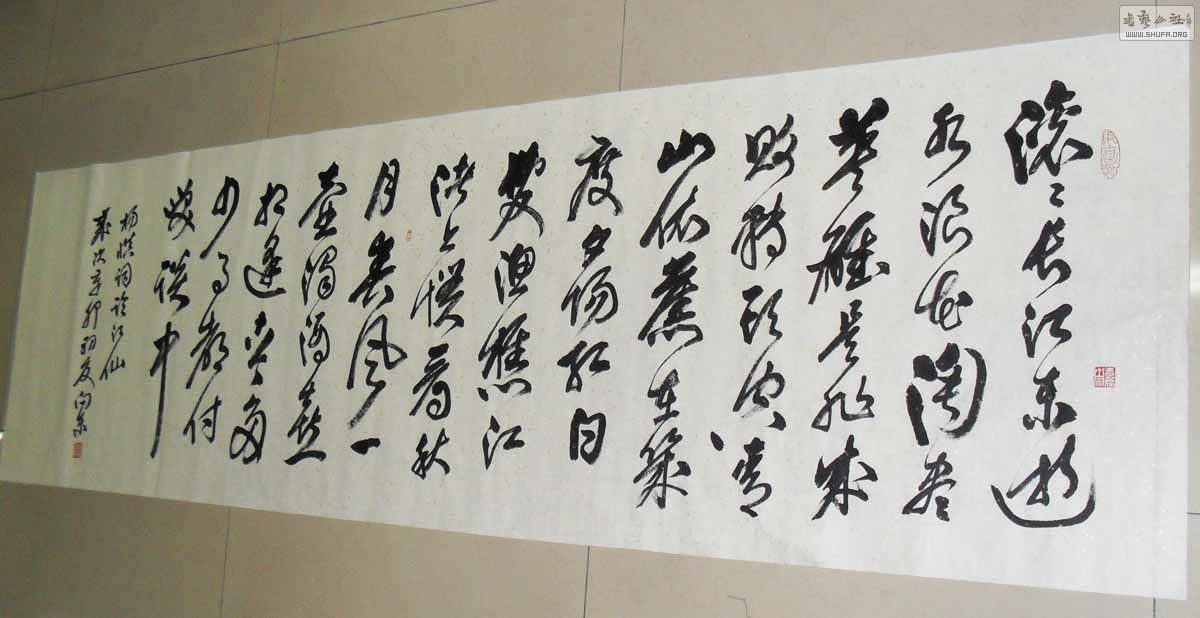 滚滚长江東逝
水浪花淘尽
英雄是非成
败转头空青
山依舊在幾
度夕阳红白
发渔樵江
渚上惯看秋
月春风一
壶浊酒喜
相逢古今多
少事都付
笑谈中
杨慎词临江仙
岁次辛卯初夏
书艺公社
WWW.SHUFA.ORG